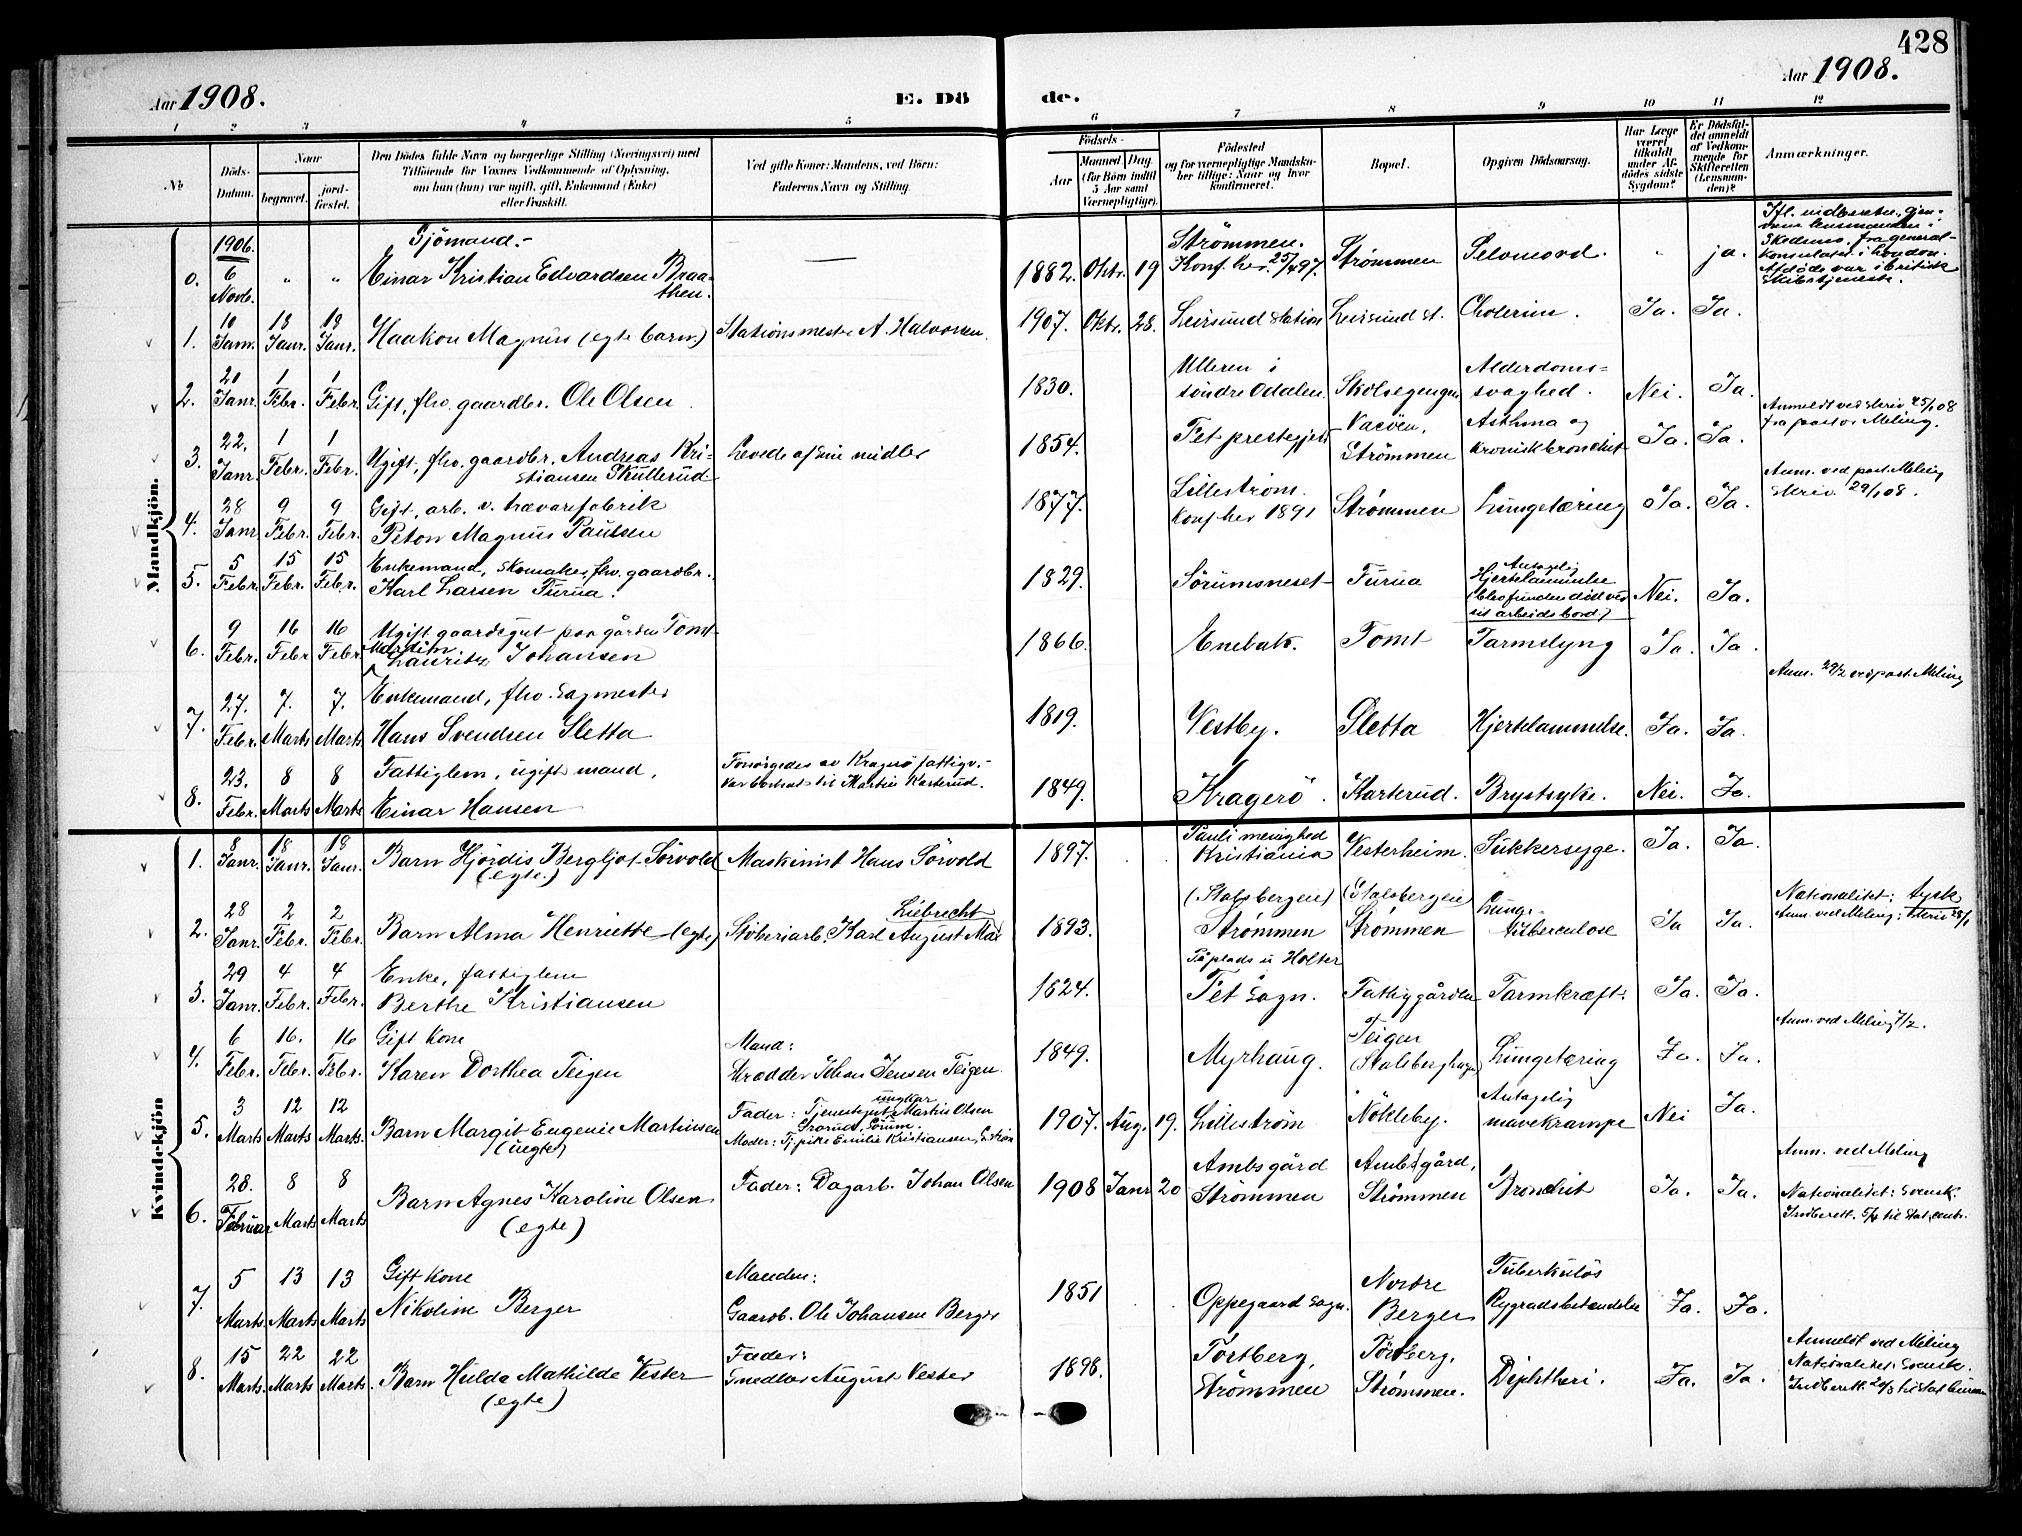 428
Aar 1908.
E. Dö
de.
Aar 1908.
1 2 3 4 5 6 7 8 9 10 11 12
No
Döds-Datum.
Naar
begravet.
jordfæstet.
Den Dödes fulde Navn og borgerlige Stilling (Næringsvei) med
Tilföiende for Voxnes Vedkommende af Oplysning,
om hun (hun) var ugift, gift, Enkemand (Enke)
eller fraskilt.
Ved gifte Koner: Mandens, ved Börn:
Faderens Navn og Stilling.
Födsels-
Aar
Maaned. Dag.
(for Börn indtil
5 Aar samt
Værnepligtige).
Födested
og for værnepligtige Mandskaber tillige: Naar og hvor
konfirmeret.
Bopæl.
Opgiven Dödsaarsag.
Har Læge
været
tilkaldt
under Afdödes sidste
Sygdom?
Er Dödsfaldet anmeldt
af Vedkommende for
Skifteretten
(Lensmanden)?
Anmærkninger.
Mandkjön.
0. 1906. 6 Novb. " " Sjömand.- Einar Kristian Edvardsen Braathen. — 1882. Oktr. 19 Strömmen. Konf. her 25/4 97. Strömmen Selvmord. " ja.
Skedsmo, fra generalkonsulatet i London. Afdöde var i britisk skibstjeneste.
1. 10 Janr. 18 Janr. 18 Janr. Haakon Magnus (egte barn) Stationsmester A. Halvorsen 1907. Oktr. 28. Leirsund station Leirsund st. Cholerin. Ja. Ja.
2. 20 Janr. 1 Febr. 1 Febr. Gift, fhv. gaardbr. Ole Olsen 1830. Ulleren i söndre Odalen Skolsegengen Alderdomssvaghed. Nei. Ja.
3. 22. Janr. 1 Febr. 1 Febr. Ugift, fhv. gaardbr. Andreas Kristiansen Skullerud Levede af sine midler 1854. Fet prestegjeld Strömmen Asthma og kronisk bronchit Ja. Ja. Anmeldt ved skriv 25/1 08 fra pastor Meling.
4. 28 Janr. 9 Febr. 9 Febr. Gift, arb. v. trævarefabrik Peton Magnus Paulsen 1877. Lilleström. Konf her 1891 Strömmen Lungetæring Ja. Ja. Anm. ved past. Meling skriv. 29/1 08.
5. 5 Febr. 15 Febr. 15 Febr. Enkemand, skomaker, fhv. gaardbr. Karl Larsen Furua. 1829. Sörumsneset Furua Antagelig Hjertelammelse (blev funden död ved sit arbeidsbord) Nei. Ja.
6. 9 Febr. 16 Febr. 16 Febr. Ugift gaardsgut paa gården Tomt Martin Lauritz Johansen 1866. Enebak. Tomt Tarmslyng Ja. Ja.
7. 27. Febr. 7. Marts 7. Marts Enkemand, fhv. sagmester Hans Svendsen Sletta 1819. Vestby. Sletta Hjertelammelse. Ja. Ja. Anm. 29/2 ved past. Meling
8. 23. Febr. 8 Marts 8 Marts Fattiglem, ugift mand. Einar Hansen Forsörgedes av Kragerö fattigv.- var bortsat til Martin Karterud. 1849. Kragerö. Karterud. Brystsyke. Nei. Ja.
Kvindekjön
1. 8 Janr. 18 Janr. 18 Janr. Barn Hjördis Bergljot Sörvold (egte.) Maskinist Hans Sörvold 1897. Pauli menighed Kristiania Vesterheim. Sukkersyge. Ja. Ja.
2. 28 Janr. 2 Febr. 2 Febr. Barn Alma Henriette (egte) Stöberiarb. Karl August Max Liebrecht 1893. (Stalsbergen) Strömmen (Stalsbergen) Strömmen Lungetuberculose Ja Ja. Nationalitet: tysk Anm. ved Meling: skriv 28/1
3. 29 Janr. 4 Febr. 4 Febr. Enke, fattiglem Berthe Kristiansen 1824. Påplads u Holter Fet sogn. Fattiggården Tarmkræft. Ja. Ja.
4. 6 Febr. 16. Febr. 16 Febr. Gift kone Karen Dorthea Teigen Mand: Skrædder Johan Jensen Teigen. 1849. Myrhaug. Teigen (Stalsberghagen) Lungetæring Ja. Ja. Anm. ved Meling 7/2.
5. 3 Marts 12 Marts 12 Marts Barn Margit Eugenie Martinsen (uegte) Fader: Tjenestegut ungkar Martin Olsen Sörum. Moder: Tj. pike Emilie Kristiansen, 1907. Aug. 19. Lilleström Nökleby. Antagelig mavekrampe Nei Ja.
6. 28. Februar 8 Marts 8 Marts Barn Agnes Karoline Olsen (egte) Fader: Dagarb. Johan Olsen 1908 Janr 20 Ambsgård Strömmen Ambsgård, Strömmen Bronchit Ja. Ja. Anm. ved Meling Nationalitet: Svensk. Indberett. 5/3 til Stat. centr.
7. 5 Marts 13 Marts 13 Marts Gift kone Nikoline Berger Manden: Gaardb. Ole Johansen Berger 1851 Oppegaard sogn. Nordre Berger Tuberkulös Rygradsbetændelse Ja. Ja.
8. 15 Marts. 22 Marts 22 Marts. Barn Hulda Mathilde Vester (egte) Fader: Smedlær August Vester 1898. Törtberg, Strömmen Törtberg, Strömmen. Diphtheri. Ja. Ja. Anmeldt ved Meling Nationalitet: Svensk. Indberett. 20/3 til Stat. bureau